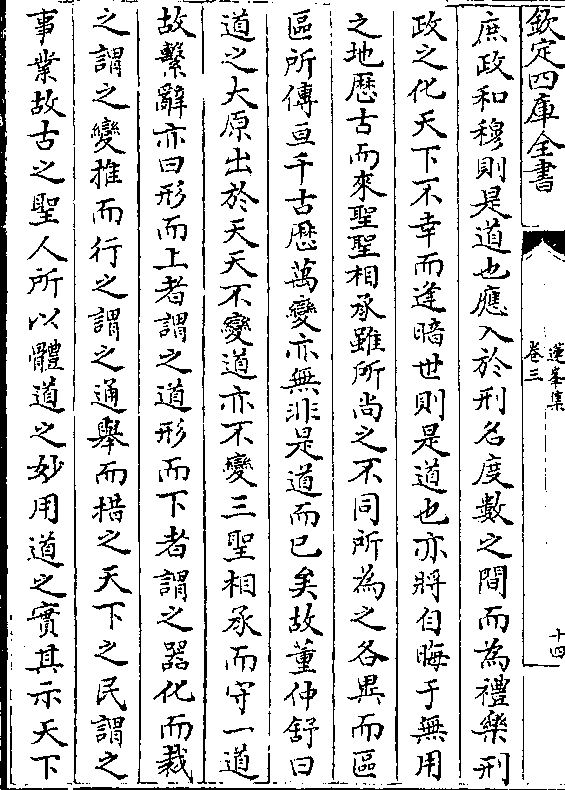 欽定四庫全書
蓮峯集
卷三
十四
庶政和穆則是道也應入於刑名度數之間而為禮樂刑
政之化天下不幸而逢暗世則是道也亦將自晦于無用
之地歴古而來聖聖相承雖所尚之不同所為之各異而區
區所傳亘千古歴萬變亦無非是道而已矣故董仲舒曰
道之大原出於天天不變道亦不變三聖相承而守一道
故繫辭亦曰形而上者謂之道形而下者謂之器化而裁
之謂之變推而行之謂之通舉而措之天下之民謂之
事業故古之聖人所以體道之妙用道之實其示天下